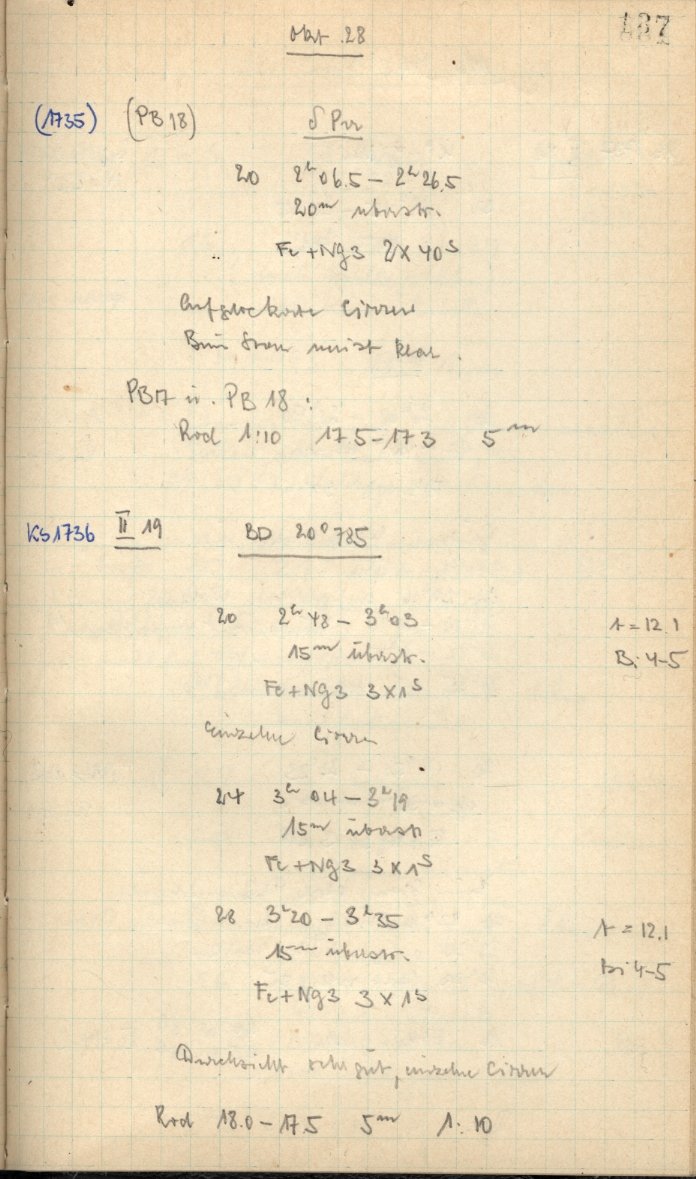 137
Okt. 28
(1735) (PB 18) δ Per
20 2h 06.5 – 2h 26.5
20m überstr.
Fe + Ng3 2x40s
Aufgelockerte Cirren
Beim Stern meist klar.
PB17 u. PB 18 :
Rod 1:10 17.5–17.3 5m
KS1736 II 19 BD 20° 785
20 2h 48 – 3h 03 t = 12.1
15m überstr. Bi 4–5
Fe + Ng3 3x1s
Einzelne Cirren
24 3h 04 – 3h 19
15m überstr.
Fe + Ng3 3x1s
28 3h 20 – 3h 35 t = 12.1
15m überstr. Bi 4–5
Fe + Ng3 3x1s
Durchsicht sehr gut, einzelne Cirren
Rod 18.0–17.5 5m 1:10